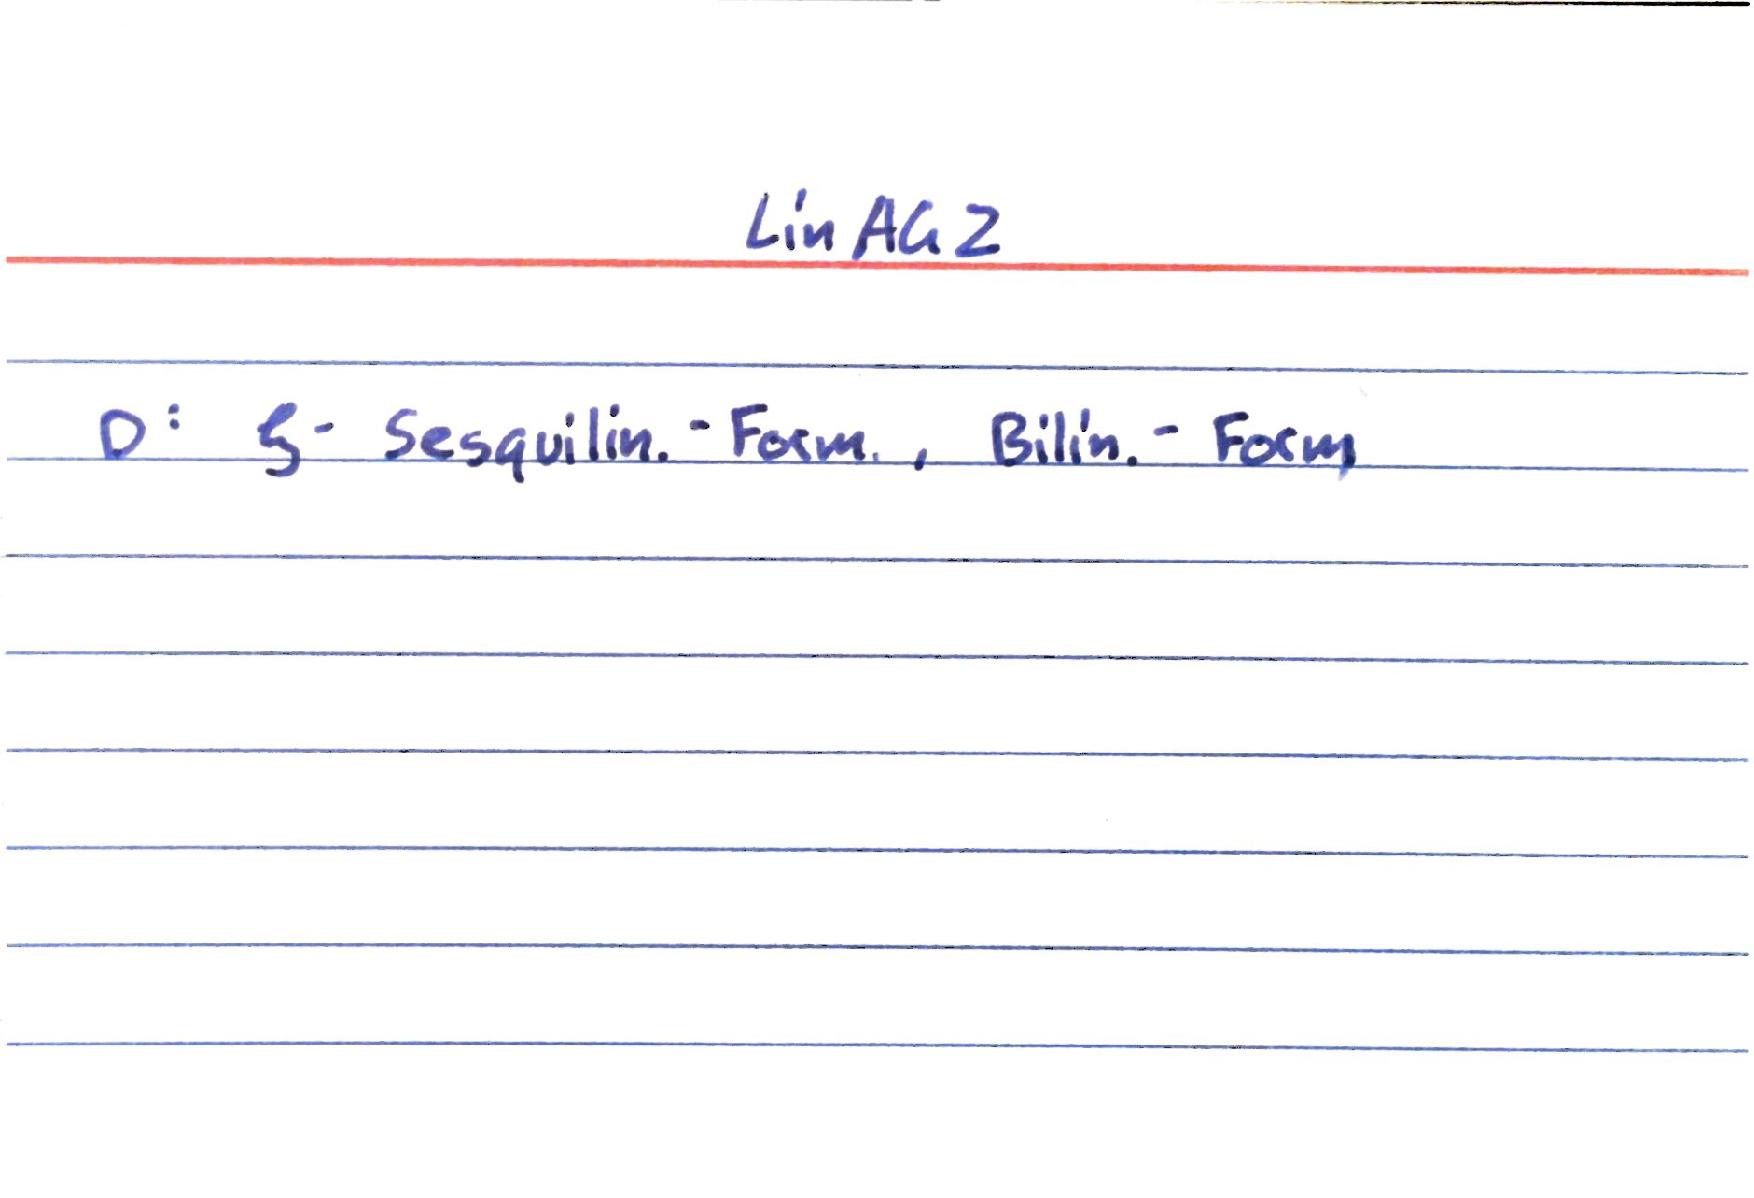 Lin AG 2
D: ξ- Sesquilin.-Form., Bilin.-Form